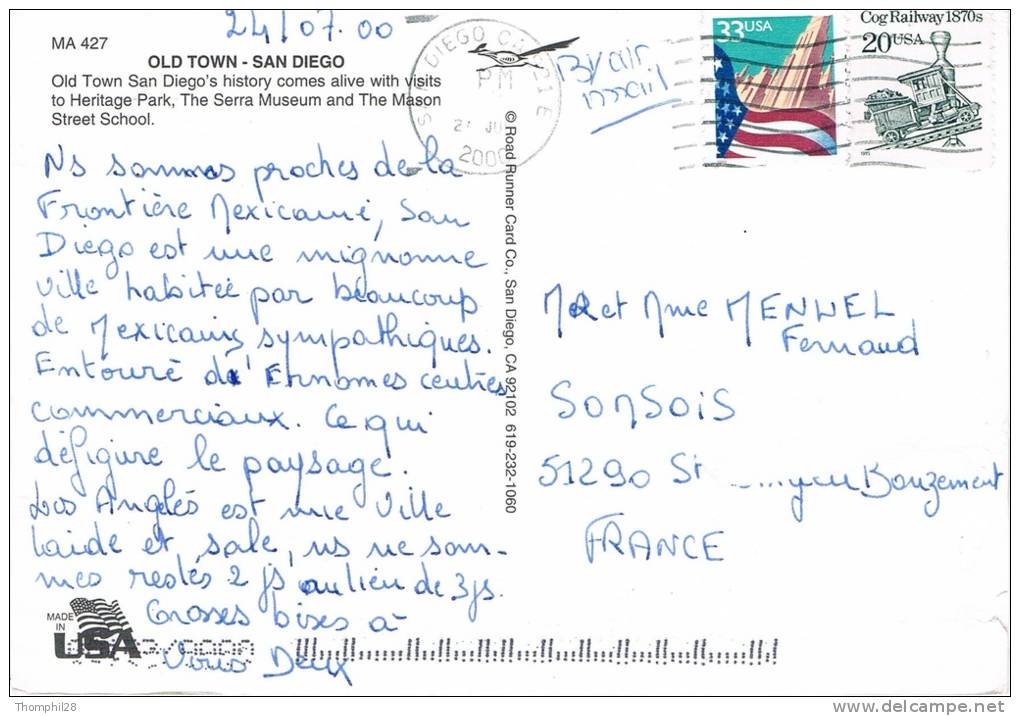 24/07.00
MA 427
OLD TOWN - SAN DIEGO
Old Town San Diego's history comes alive with visits
to Heritage Park, The Serra Museum and The Mason
Street School.
Ns sommes proches de la
Frontière Mexicaine, San
Diego est une mignonne
ville habitée par beaucoup
de Mexicains sympathiques.
Entouré d' Ennomes centres
commerciaux. Ce qui
défigure le paysage.
Los Anglés est une ville
laide et sale, ns ne som-
mes restés 2 js au lieu de 3 js.
Grosses bises à
Vous Deux
MADE
IN
USA
© Road Runner Card Co., San Diego, CA 92102 619-232-1060
SAN DIEGO CA 921
PM
2000
By air
mail
33USA
Cog Railway 1870s
20 USA
1995
Mr et Mme MENUEL
Fernand
SOMSOIS
51290 St Bouzemont
FRANCE
Thomphil28
delcampe.net